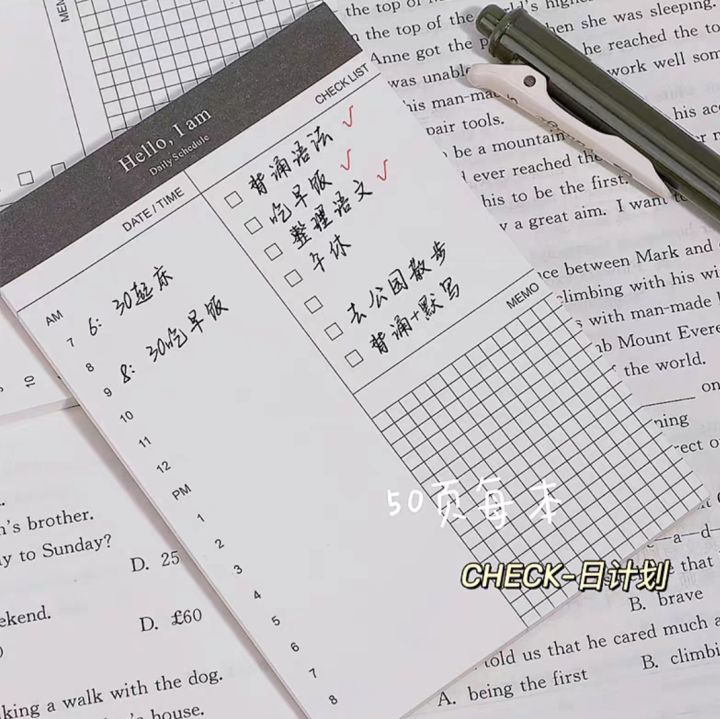 the top of
the top of the world's highest
when she was sleeping.
Anne got the
he reached the to
was unabl
work well som
his man-ma
his acc
pair tools.
be a mountain
ever reached the
his to be the first.
a great aim. I want to
MEN
Hello, I am
Daily Schedule
CHECK LIST
背诵语法 √
吃早饭 √
整理语文 √
午休
去公园散步
背诵+默写
DATE / TIME
AM
7 6:30起床
8
9 8:30吃早饭
10
11
12
PM
1
2
3
4
5
6
7
8
MEMO
10
9
nce between Mark and
climbing with his wi
s with man-made l
nb Mount Evere
the world.
on
ning
rect o
50页每本
CHECK-日计划
e—a—d—
e that
B. brave
told us that he cared much a
A. being the first
B. climbi
n's brother.
y to Sunday?
D. 25
ekend.
D. £60
king a walk with the dog.
's house.